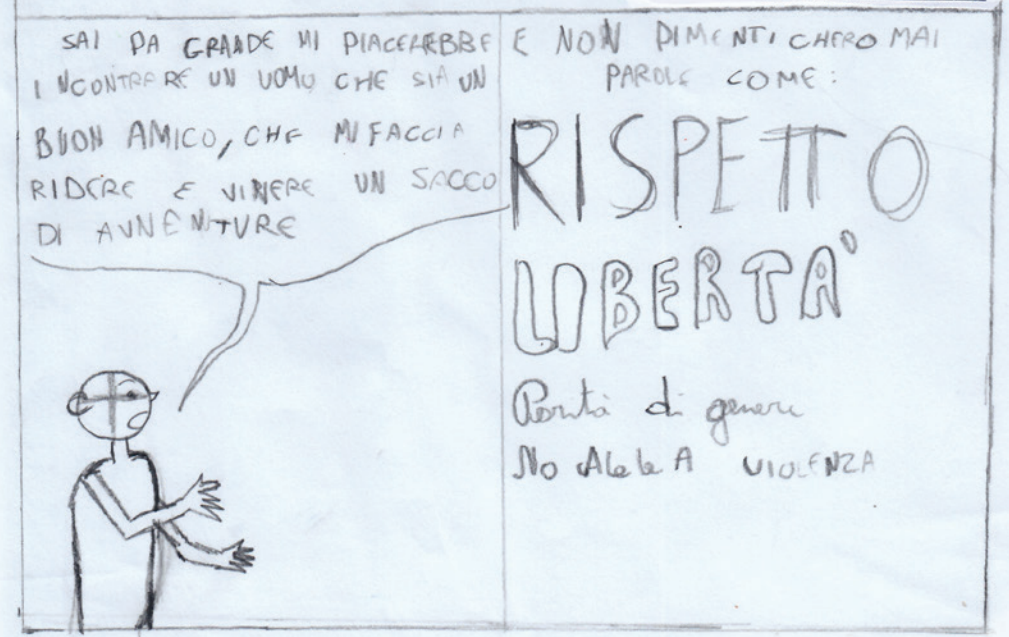 SAI DA GRANDE MI PIACEREBBE
INCONTRARE UN UOMO CHE SIA UN
BUON AMICO, CHE MI FACCIA
RIDERE E VIVERE UN SACCO
DI AVVENTURE
E NON DIMENTICHERO MAI
PAROLE COME:
RISPETTO
LIBERTA'
Parità di genere
No Alla A VIOLENZA